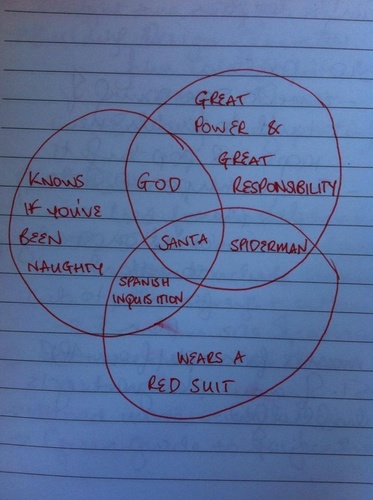 GREAT
POWER &
GREAT
RESPONSIBILITY
KNOWS
IF YOU'VE
BEEN
NAUGHTY
GOD
SANTA
SPIDERMAN
SPANISH
INQUISITION
WEARS A
RED SUIT